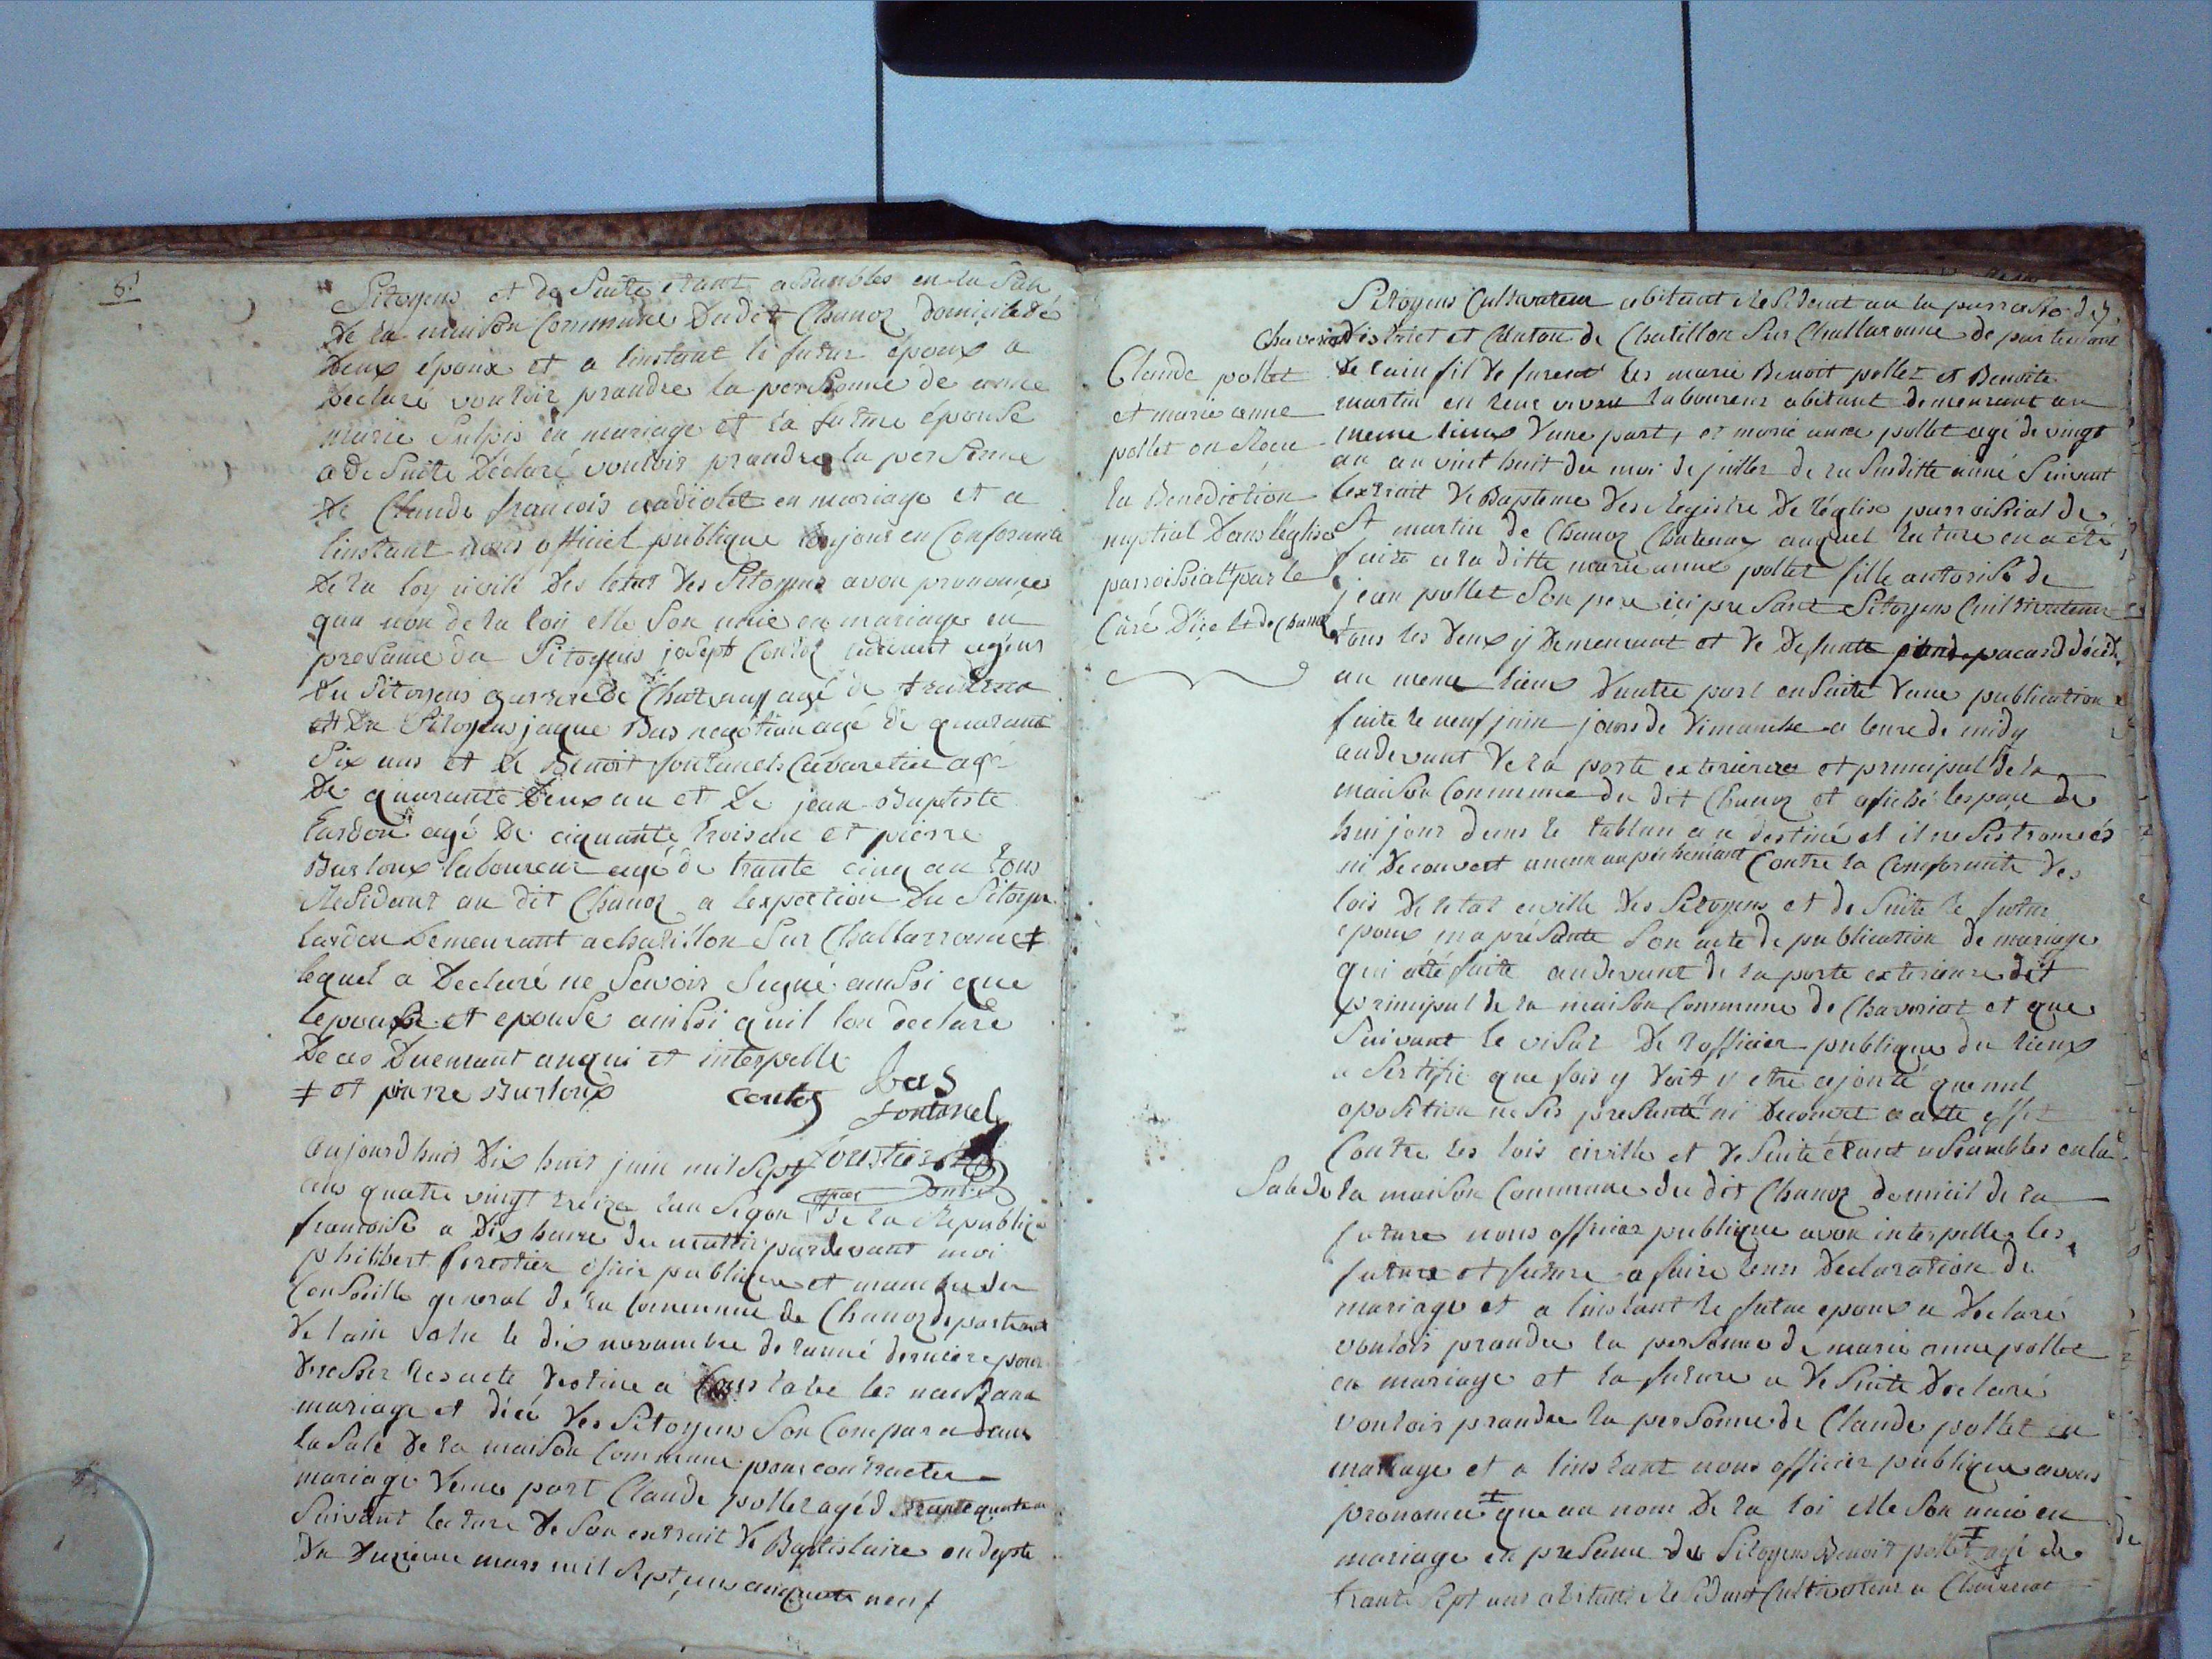 8.
Sitoyens et de Suite etant assambles en la Sale
De la maison Commune Dudit Chanoz domicile dé
Deux époux et a linstant le futur époux a
Declaré vouloir prandre la personne de anne
marie Sulpis en mariage et la future épouse
a de Suite Déclaré vouloir prandre la personne
De Claude francois en mariage et a
linstant nous officiel publique en Conformité
De la loy civile Des letat Des Sitoyens avon prononcé
quau non de la loix elle Son unie en mariage en
presance du Sitoyens josept Contoz agéns
du Sitoyens de Chatenay agé de
et Du Sitoyens jaque Bas negotian agé de quarante
Six ans et de Benoit fontanels Cabaretie agé
De quarante Deux an et De jean Baptiste
Lardon agé De ciquante trois an et pierre
Burloux laboureur agé de trante cinq an tous
Residant au dit Chanoz a lexpection Du Sitoyen
Lardon Demeurant a chatillon Sur Challarronne ‡
lequel a Declaré ne Savoir Signé aussi que
lepoux et epouse ainssi quil lon declaré
De ce Duemant anquis et interpelle
‡ et pierre Burloux contoz Bas
fontanel
forestier
aujourdhuis Dix huit juin mil Sept
ans quatre vingt treize lan Segon de la Republiq
francoise a Dix heure du mattin pardevant moi
philibert forestier officie publique et manbre du
Conseille general de la Commune de Chanoz departemt
De lain elu le dix novambre de lanné derniere pour
Dresser les acte Destine a Constaté les naissance
mariage et décé Des Sitoyens Son Comparu dans
la Sale De la maison Commune pour contracter
mariage Dune part Claude pollet agé de trante quatre an
Suivant lecture De Son extrait De Baptistaire en depte
Du Duzieme mars mil Sept cens cinquante neuf
Claude pollet
et marie anne
pollet on Recu
la Benediction
nuptial Dans leglise
parroissialt par le
Curé Dice lt de chanoz
Sitoyens Cultivateur abitant Resident au la parroisse de
Chaveriat District et Canton de Chatillon Sur Challaronne departemant
De lain fil De furent les marie Benoit pollet et Benoite
martin en leur vivan laboureur abitant demeurant au
meme lieux Dune part, et marie anne pollet agé de vingt
an au vint huit du moi de juillet de la Susditte anné Suivant
lextrait De Bapteme Des Registre De léglise parroissial de
St martin de Chanoz Chatenay auquel lecture en a été
faite a la ditte marie anne pollet fille autorisé de
jean pollet Son pere ici presant Sitoyens Cultivateur
tous les Deux y Demeurant et De Defunte pacard décédé
au meme lieux Dautre part ensuite Dune publication
faite le neuf juin jours de Dimanche a leure de midy
audevant De la porte exterieure et principal De la
maison Commune du dit Chanoz et afiché lespace de
huijour dans le tablau a a destiné et il ne Ses trouvés
ni Decouvert aucun anpéchemant Contre la Conformité Des
lois De letat civille Des Sitoyens et de Suite le futur
epoux ma présanté Son acte de publication de mariage
qui a été faite audevant de la porte exterieure det
principal de la maison Commune de Chaveriat et que
Suivant le visat De lofficier publique du lieux
a Sertifié que fois y Doit y etre ajouté que nul
oposition ne Ses presanté ni Decouvert a cette effet
Contre les lois civille et De Suite étant assambles en la
Sale de la maison Commune du dit Chanoz domicil de la
future nous officier publique avon interpelle les
future et future a faire leurs Declaration de
mariage et a linstant le futur epoux a Declaré
vouloir prandre la personne de marie anne pollet
en mariage et la future a De Suite Declaré
vouloir prandre la personne de Claude pollet en
mariage et a linstant nous officier publique avons
prononcé ‡ que au nom De la loi elle Son unie en
mariage en presance du Sitoyens Benoit pollet ‡ agé de
trante Sept ans abitant Residant Cultivateur a Chaveriat
de